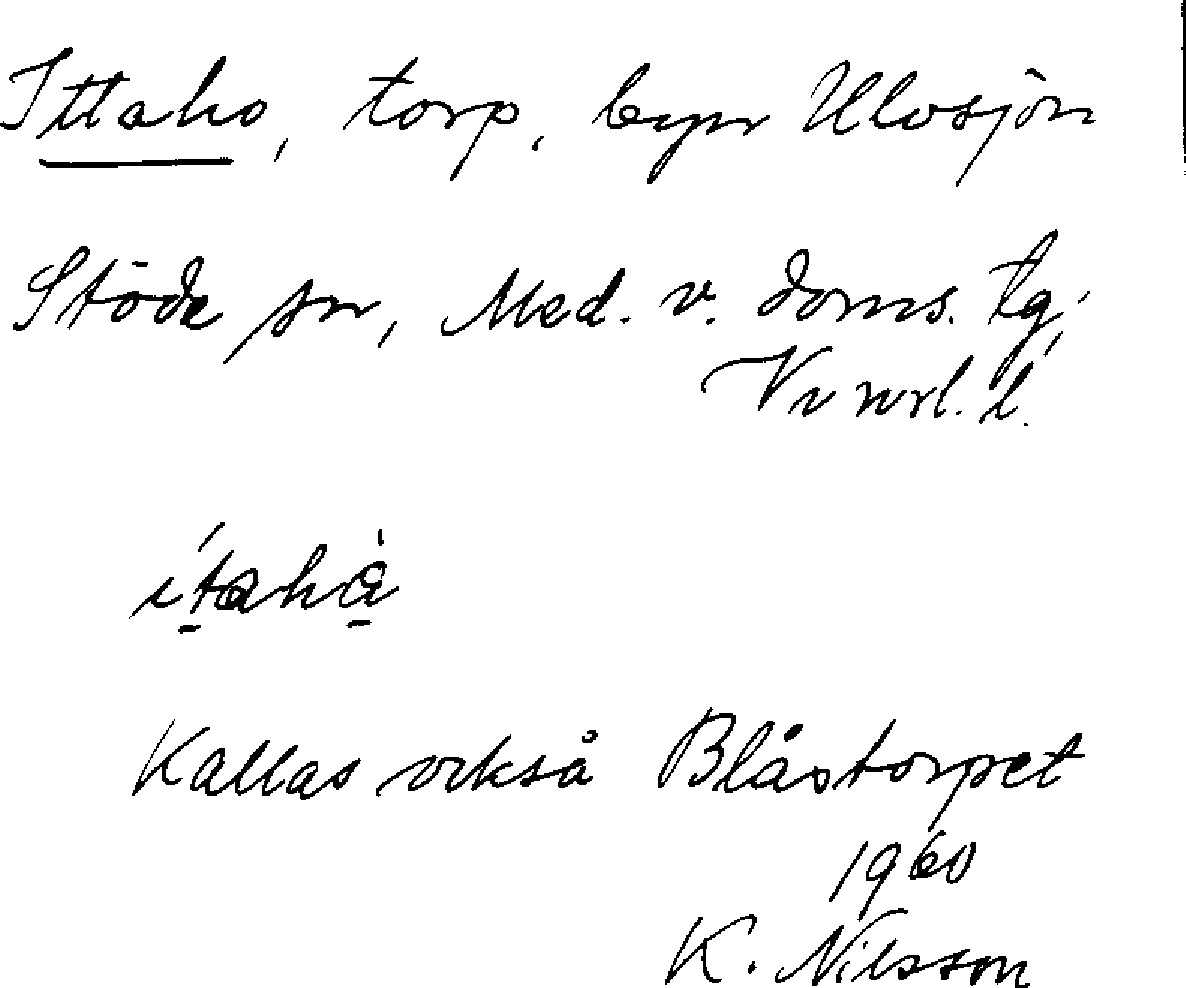 Ittaho, torp, byn Ulvsjön
Stöde sn, Med. v. doms. tg,
Vv nrl. l.
Kallas också Blåstorpet
1960
K. Nilsson